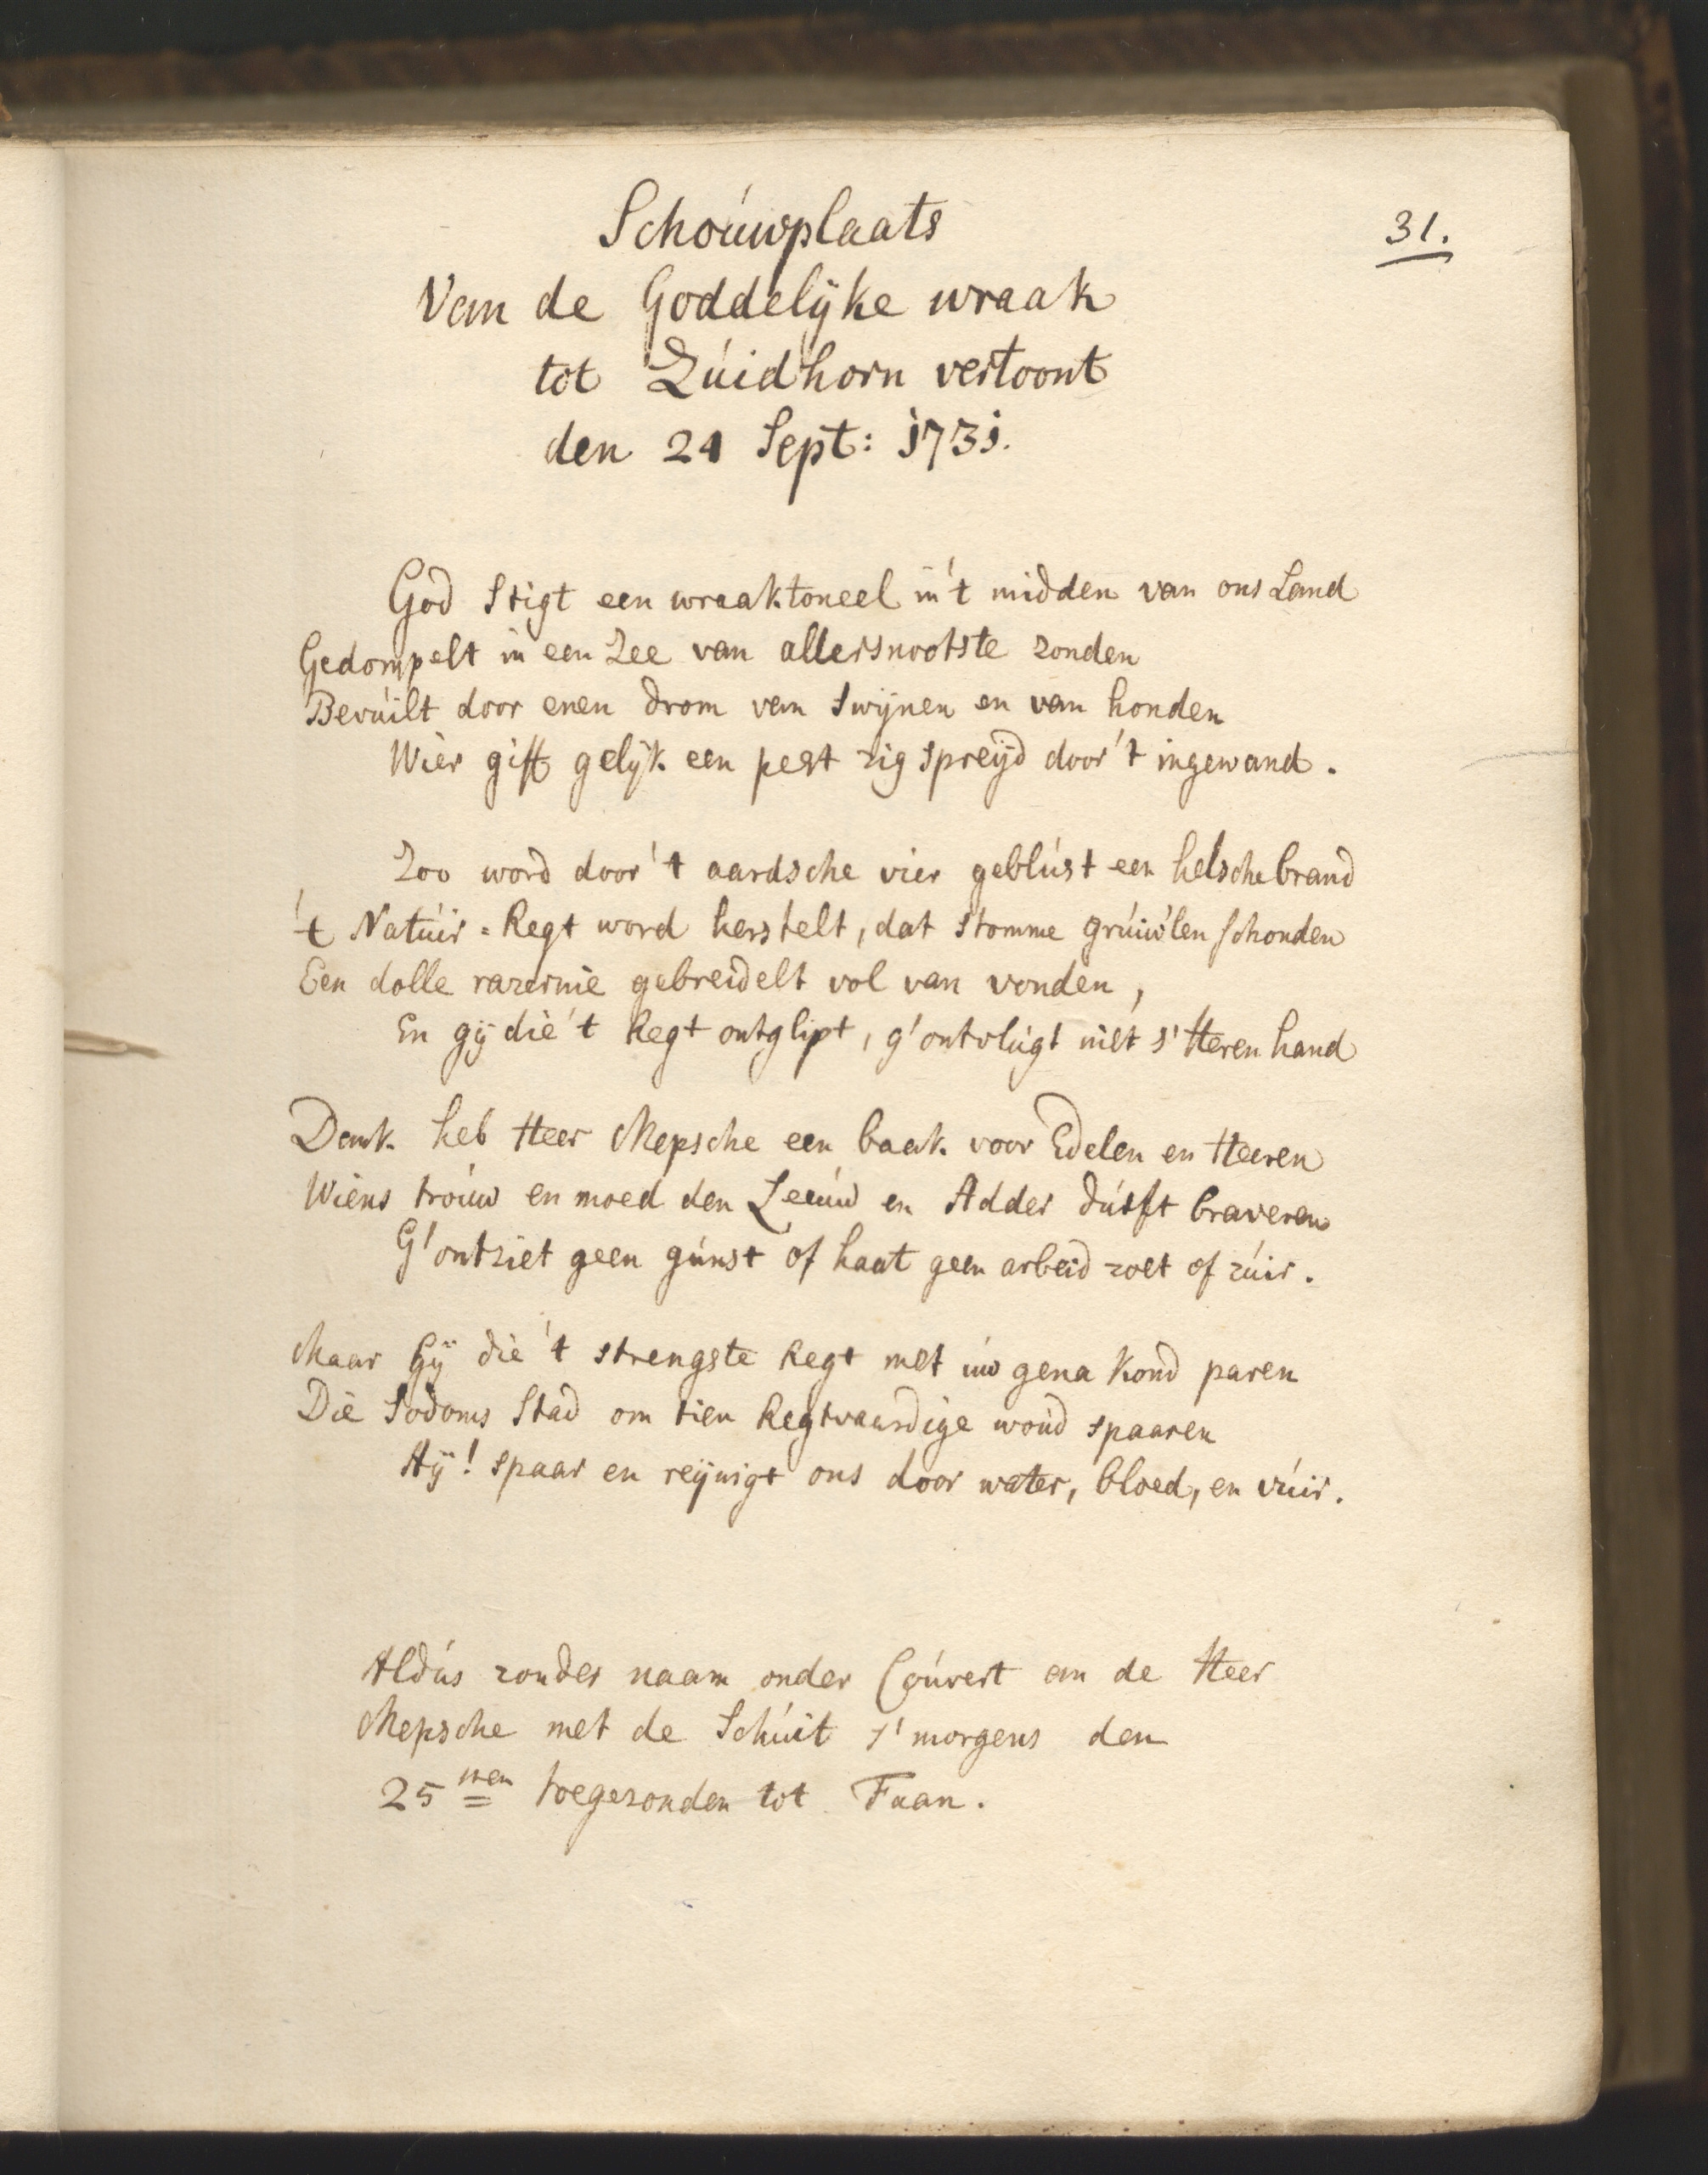 Schouwplaats
31.
Van de Goddelijke wraak
tot Zuidhorn vertoont
den 24 Sept: 1731.
God stigt een wraaktoneel in 't midden van ons Land
Gedompelt in een Zee van allersnootste zonden
Bevuilt door enen drom van swijnen en van honden
Wier gift gelijk een pest zig spreijd door 't ingewand.
Zoo word door 't aardsche vier geblust een helsche brand
't Natuir=Regt word herstelt, dat stomme gruiw'len schonden
Een dolle razernie gebreidelt vol van vonden,
En gij die 't Regt ontglipt, g'ontvlugt niet s'Heren hand
Dank heb Heer Mepsche een baak voor Edelen en Heeren
Wiens trouw en moed den Leeuw en Adder durft braveren
G'ontziet geen gunst of haat geen arbeid zoet of zuir.
Maar Gij die 't strengste Regt met uw gena kond paren
Die Sodoms Stad om tien Regtvaardige woud spaaren
Aij! spaar en reijnigt ons door water, bloed, en vuir.
Aldus zonder naam onder Couvert an de Heer
Mepsche met de Schuit s'morgens den
25sten toegezonden tot Faan.